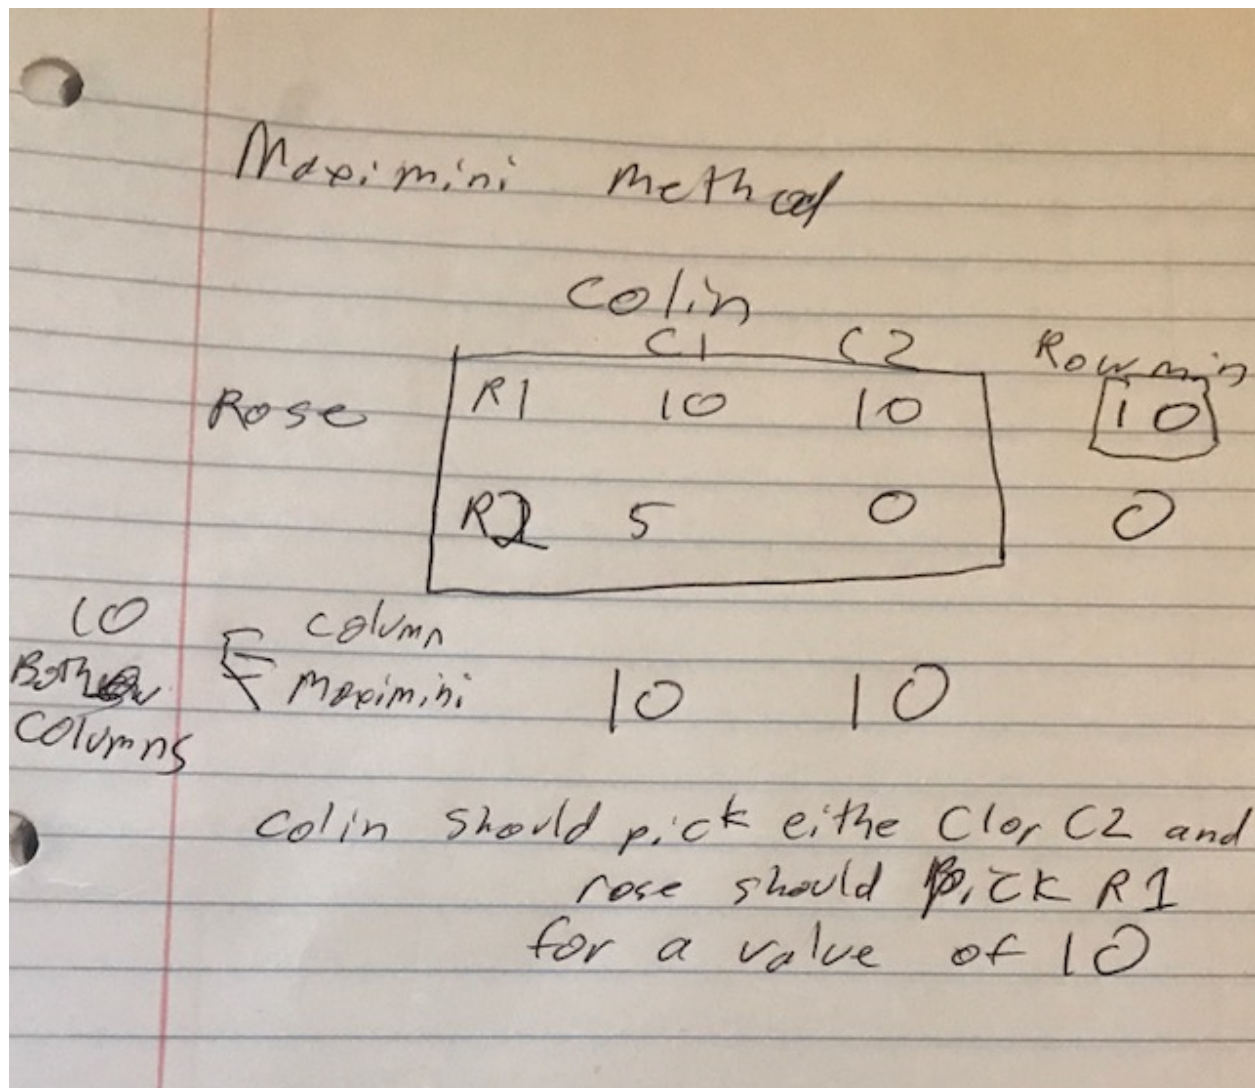 Maximini method
Colin
C1 C2 Row min
Rose R1 10 10 10
R2 5 0 0
10 column
Both
Columns maximini 10 10
Colin should pick eithe C1 or C2 and
rose should pick R1
for a value of 10